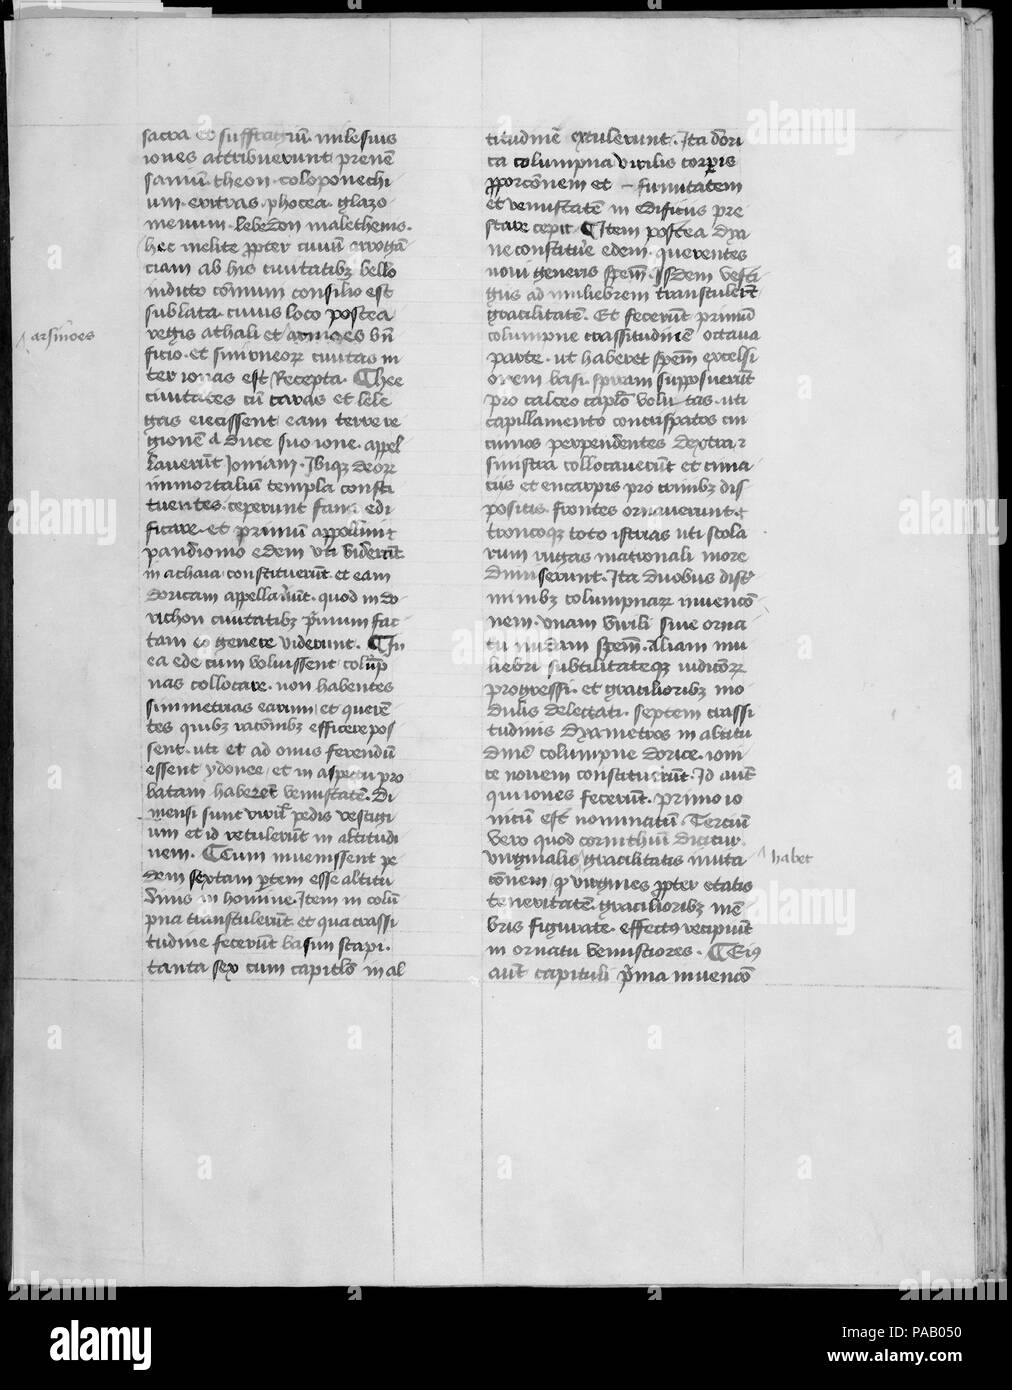 sacra et suffragiū. milesius
iones attribuerunt prenen̄
samiū. theon. coloponechi
um. eritras. phocea. glazo
menium. lebedon maletheniis.
hec melite ꝓpter ciuiū arrogā
ciam ab his ciuitatibꝫ bello
indicto cōmuni consilio est
sublata. cuius loco postea
regis athali et bn̄
arsinoes
ficio. et smirneoꝝ ciuitas in
ter ionas est Recepta. ¶hee
ciuitates cū caras et lele
gas eiecissent eam terre re
gionē a duce suo ione. appel
lauerūt Ioniam. Ibiqꝫ deoꝝ
immortaliū templa consti
tuentes. ceperunt fana edi
ficare. et primū appollini
pandionio edem uti viderūt
in achaia constituerūt. et eam
doricam appellauūt. quod in do
richon ciuitatibꝫ p̄mum fac
tam eo genere viderunt. ¶In
ea ede cum voluissent colūp
nas collocare. non habentes
simmetrias earum et querē
tes quibꝫ racōnibꝫ efficere pos
sent. uti et ad onus ferendū
essent ydonee. et in aspectu pro
batam haberēt venustatē. Di
mensi sunt viril̄ pedis vestigi
um et id retulerūt in altitudi
nem. ¶Cum inuenissent pe
dem sextam ꝑtem esse altitu
dinis in homine. Item in colū
pna transtulerūt. et qua crassi
tudine fecerūt basim scapi.
tanta sex cum capitl̄o in al
titudinē extulerunt. Ita dori
ca columpna virilis corꝑis
ꝓporcōnem et firmitatem
et venustatē in edificiis pre
stare cepit. ¶Item postea dya
ne constitue edem. querentes
noui generis spēm. Isdem vesti
giis ad muliebrem transtulerūt
gracilitatē. Et fecerūt primū
columpne crassitudinē octaua
parte. ut haberet spēm excelsi
orem basi. spiram supposuerūt
pro calceo capl̄o volutas. uti
capillamento concrispatos cin
cinnos perpendentes dextra ⁊
sinistra collocauerūt et cima
ciis et encarpis pro crinibꝫ dis
positis. frontes ornauerunt. ⁊
troncoqꝫ toto istrias uti stola
rum rugas matronali more
dimiserunt. Ita duobus discr̄
minibꝫ columpnaꝝ inuencō
nem. vnam virili siue orna
tu nudam spēm. Aliam mu
liebri subtilitateqꝫ iudicioꝝ
progressi. et gracilioribꝫ mo
dulis delectati. septem crassi
tudinis dyametros in altitu
dinē columpne dorice. ioni
ce nouem constituerūt. Id aūt
qui iones fecerūt. primo io
nicū est nominatū. Terciū
vero quod corinthiū dicitur.
virginalis gracilitatis imita
habet
cōnem qꝛ virgines ꝓpter etatis
teneritatē. gracilioribꝫ mē
bris figurate. effectus recipiūt
in ornatu venustiores. ¶Eiꝰ
aūt capituli p̄ma inuencō
alamy
Image ID: PAB050
www.alamy.com